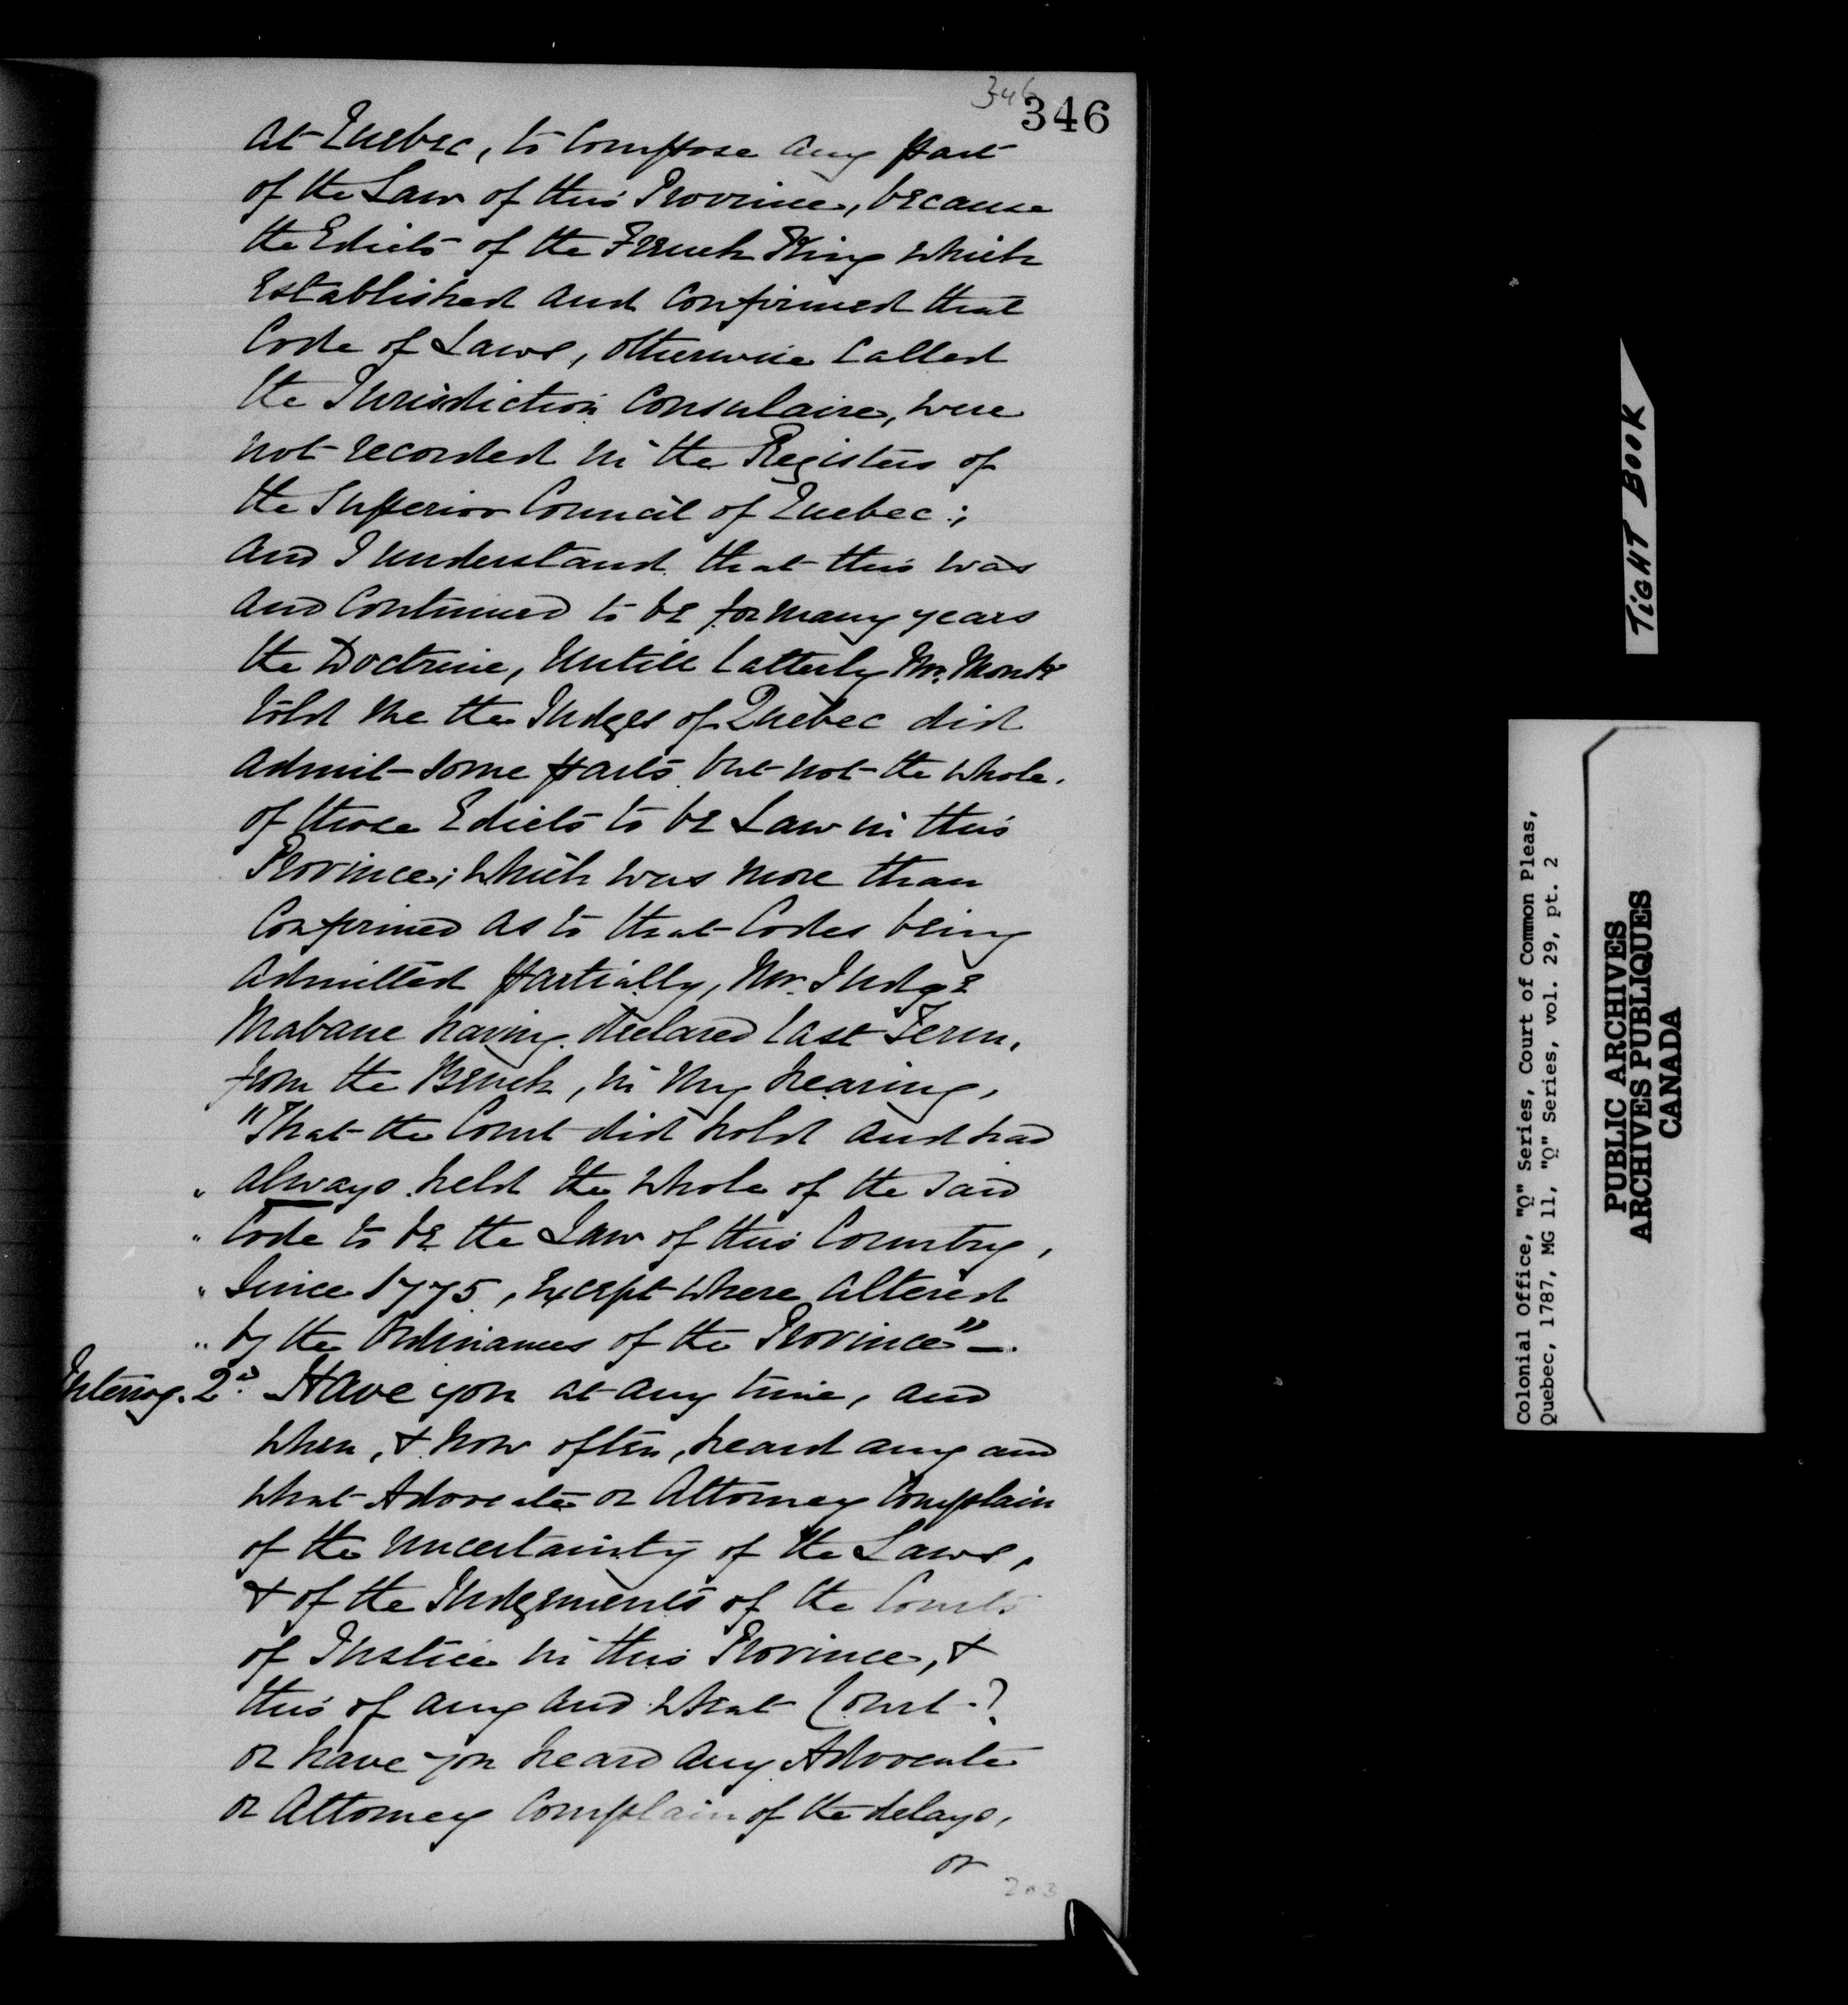 346
346
at Quebec, to compose any part
of the Law of this Province, because
the Edicts of the French King which
Established and Confirmed that
Code of Laws, otherwise called
the Jurisdiction Consulaire, were
not recorded in the Registers of
the Superior Council of Quebec;
and I understand that this was
and Continued to be for many years
the Doctrine, Untill latterly Mr. Monk
told me the Judges of Quebec did
admit some parts but not the whole
of those Edicts to be Law in this
Province; which was more than
Confirmed as to that Codes being
admitted partially, Mr. Judge
Mabane having declared last Term,
from the Bench, in my hearing,
"That the Court did hold and had
" always held the whole of the said
" Code to be the Law of this Country,
" Since 1775, except where altered
" by the Ordinances of the Province" —.
Interrog. 2d. Have you at any time, and
when, & how often, heard any and
what Advocate or Attorney Complain
of the uncertainty of the Laws,
& of the Judgements of the Courts
of Justice in this Province, &
this of any and what Court?
or have you heard any Advocate
or Attorney Complain of the delays,
or
203
TIGHT BOOK
Colonial Office, "Q" Series, Court of Common Pleas,
Quebec, 1787, MG 11, "Q" Series, vol. 29, pt. 2
PUBLIC ARCHIVES
ARCHIVES PUBLIQUES
CANADA